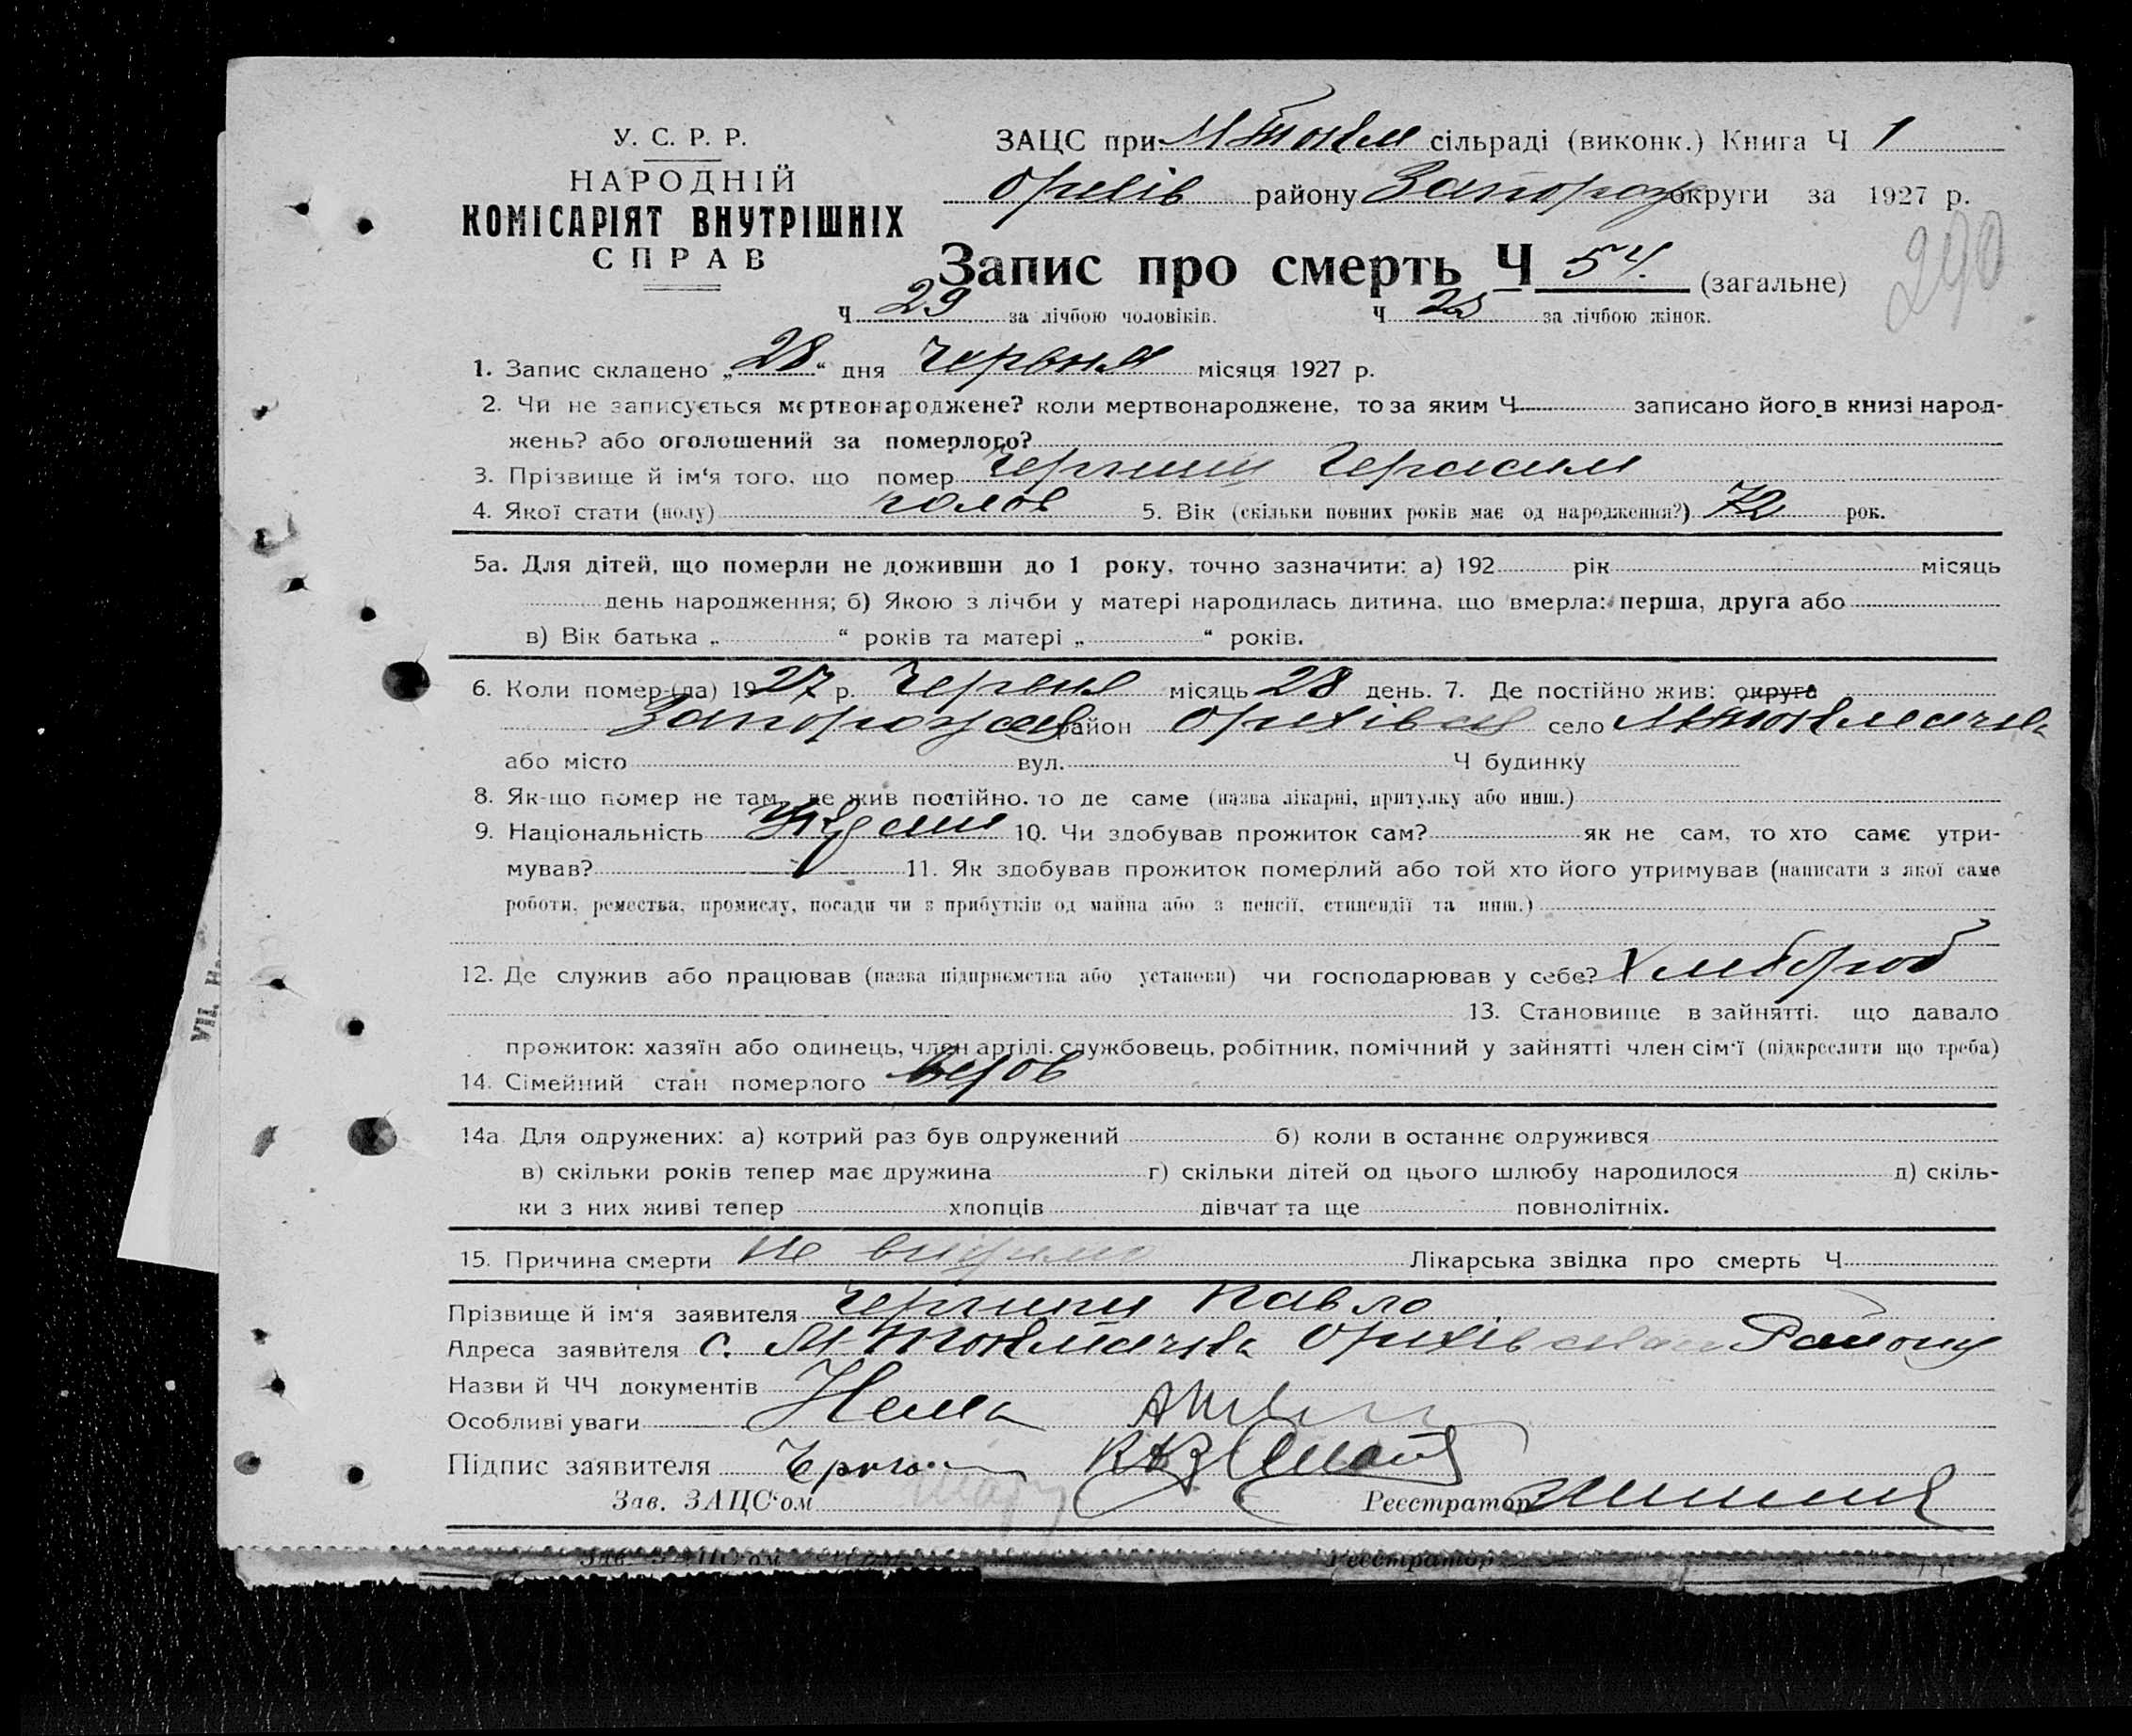 У. С. Р. Р.
НАРОДНІЙ
КОМІСАРІЯТ ВНУТРІШНІХ
СПРАВ
ЗАЦС при М Токм сільраді (виконк.) Книга Ч 1
Оріхів району Запорож округи за 1927 р.
290
Запис про смерть Ч 54. (загальне)
Ч 29 за лічбою чоловіків. Ч 25 за лічбою жінок.
1. Запис складено „28“ дня Червня місяця 1927 р.
2. Чи не записується мертвонароджене? коли мертвонароджене, то за яким Ч записано його в книзі народ-
жень? або оголошений за померлого?
3. Прізвище й ім‘я того, що помер Герасим
4. Якої стати (полу) 5. Вік (скільки повних років має од народження?) 72 рок.
5а. Для дітей, що померли не доживши до 1 року, точно зазначити: а) 192 рік місяць
день народження; б) Якою з лічби у матері народилась дитина, що вмерла: перша, друга або
в) Вік батька „ “ років та матері „ “ років.
6. Коли помер-(ла) 1927 р. Червня місяць 28 день. 7. Де постійно жив: округа
Запорожськ район Оріхівськ село М Токмачка
або місто вул. Ч будинку
8. Як-що помер не там, де жив постійно, то де саме (назва лікарні, притулку або инш.)
9. Національність 10. Чи здобував прожиток сам? як не сам, то хто саме утри-
мував? 11. Як здобував прожиток померлий або той хто його утримував (написати з якої саме
роботи, ремества, промислу, посади чи з прибутків од майна або з пенсії, стипендії та инш.)
12. Де служив або працював (назва підприємства або установи) чи господарював у себе? Хлибороб
13. Становище в зайнятті, що давало
прожиток: хазяїн або одинець, член артілі, службовець, робітник, помічний у зайнятті член сім‘ї (підкреслити що треба)
14. Сімейний стан померлого вдов
14а. Для одружених: а) котрий раз був одружений б) коли в останнє одружився
в) скільки років тепер має дружина г) скільки дітей од цього шлюбу народилося д) скіль-
ки з них живі тепер хлопців дівчат та ще повнолітніх.
15. Причина смерти Не видимо Лікарська звідка про смерть Ч
Прізвище й ім‘я заявителя Павло
Адреса заявителя с. М Токмачка Оріхівськаго Району
Назви й ЧЧ документів
Особливі уваги Нема
Підпис заявителя
Зав. ЗАЦС‘ом Реєстратор
Зав. ЗАЦС‘ом Реєстратор